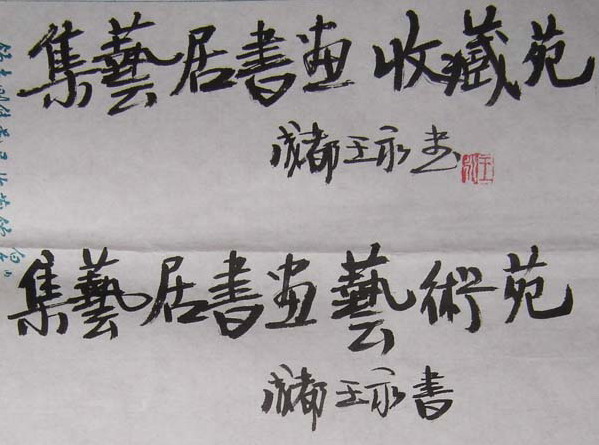 集藝居書画收藏苑
成都王永书
王永
集藝居書画藝術苑
成都王永書